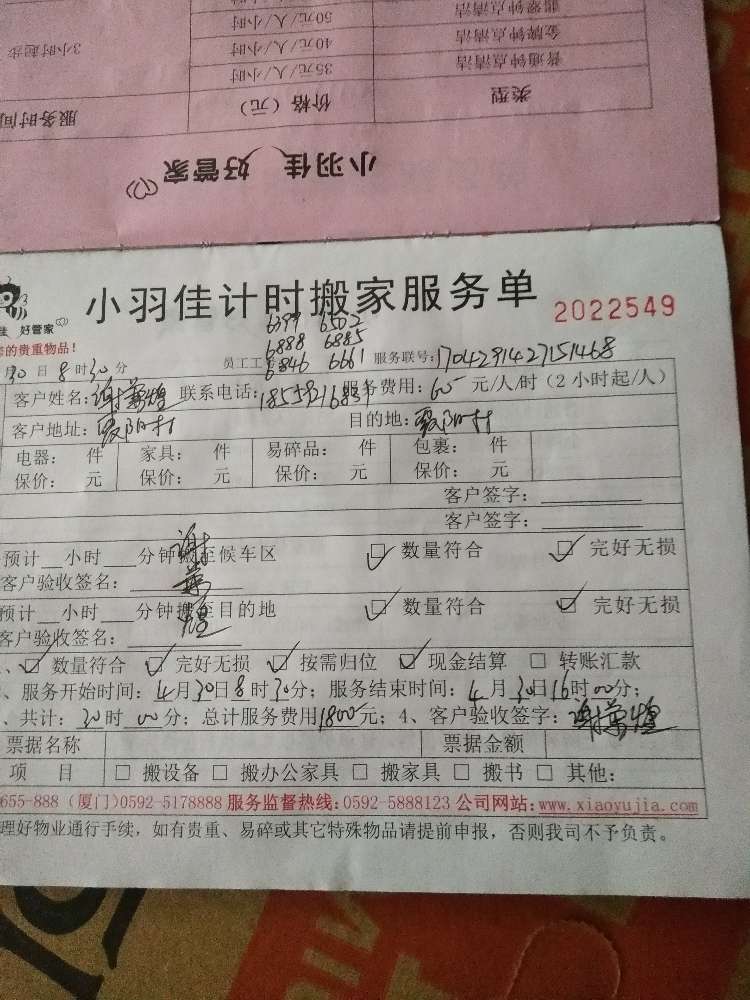 翡翠钟点清洁 50元/人/小时
金牌钟点清洁 40元/人/小时 3小时起步
普通钟点清洁 35元/人/小时
类型 价格(元) 服务时间
小羽佳 好管家
小羽佳计时搬家服务单 2022549
佳 好管家
的贵重物品!
6399 6502
6888 6885
月30日8时30分 员工工 6846 6661 服务联号:1704291427151468
客户姓名: 联系电话: 服务费用:60 元/人/时(2小时起/人)
客户地址:霞阳村 目的地:霞阳村
电器: 件 家具: 件 易碎品: 件 包裹: 件
保价: 元 保价: 元 保价: 元 保价: 元
客户签字:
客户签字:
预计__小时___分钟搬至候车区 ☑ 数量符合 ☑ 完好无损
客户验收签名:谢
预计__小时___分钟搬至目的地 ☑ 数量符合 ☑ 完好无损
客户验收签名:煌
、☑ 数量符合 ☑ 完好无损 ☑ 按需归位 ☑ 现金结算 □ 转账汇款
、服务开始时间:4月30日8时30分;服务结束时间:4月30日16时00分;
、共计:30时00分;总计服务费用1800元;4、客户验收签字:
票据名称 票据金额
项 目 □ 搬设备 □ 搬办公家具 □ 搬家具 □ 搬书 □ 其他:
655-888 (厦门)0592-5178888 服务监督热线:0592-5888123 公司网站:www.xiaoyujia.com
理好物业通行手续,如有贵重、易碎或其它特殊物品请提前申报,否则我司不予负责。